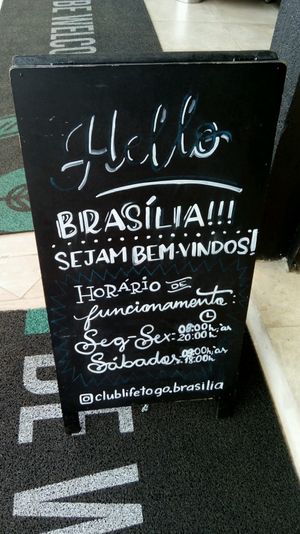 BE WELCO
Hello
BRASÍLIA!!!
SEJAM BEM-VINDOS!
HORÁRIO DE
funcionamento:
Seg-Sex: 08:00h, às 20:00h
Sábados: 09:00h, às 18:00h
@clublifetogo.brasilia
BE W